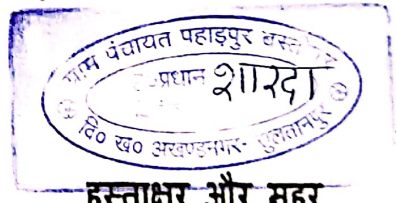 ग्राम पंचायत पहाड़पुर
प्रधान
शारदा
वि० ख० अखण्डनगर- सुलतानपुर
हस्ताक्षर और मुहर